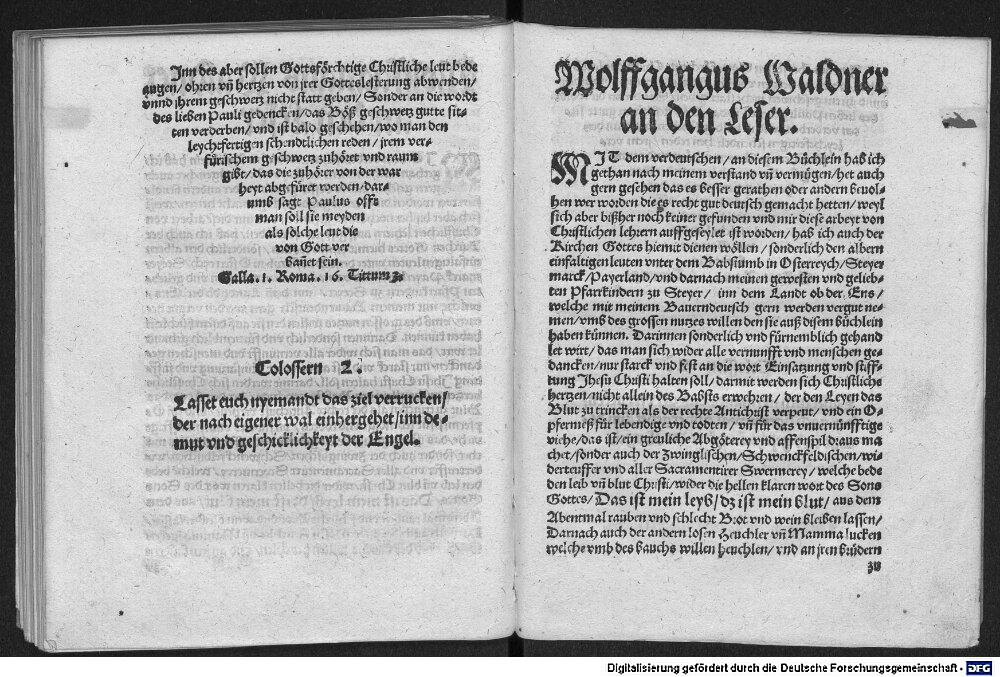 Inn des aber sollen Gottsförchtige Christliche leut bede
augen / ohren vñ hertzen von jrer Gotteslesterung abwenden /
vnnd ihrem geschwetz nicht statt geben / Sonder an die wordt
des lieben Pauli gedencken / das Böß geschwetz gutte sit-
ten verderben / vnd ist bald geschehen / wo man den
leychtfertigen schendtlichen reden / jrem ver-
fürischem geschwetz zuhöret vnd raum
gibt / das die zuhörer von der war
heyt abgefüret werden / dar-
umb sagt Paulus offt
man soll sie meyden
als solche leut die
von Gott ver
bañet sein.
Galla. 1. Roma. 16. Tittum 3.
Colossern 2.
Lasset euch nyemandt das ziel verrucken /
der nach eigener wal einhergehet / inn de-
mut vnd geschicklichkeyt der Engel.
Wolffgangus Waldner
an den Leser.
MIT dem verdeutschen / an diesem Büchlein hab ich
gethan nach meinem verstand vñ vermügen / het auch
gern gesehen das es besser gerathen oder andern beuol-
hen wer worden die es recht gut deutsch gemacht hetten / weyl
sich aber bißher noch keiner gefunden vnd mir diese arbeyt von
Christlichen lehrern auffgeseylet ist worden / hab ich auch der
Kirchen Gottes hiemit dienen wöllen / sonderlich den albern
einfaltigen leuten vnter dem Babstumb in Osterreych / Steyer
marck / Payerland / vnd darnach meinen gewesten vnd gelieb-
ten Pfarrkindern zu Steyer / inn dem Landt ob der Ens /
welche mit meinem Bauerndeutsch gern werden vergut ne-
men / vmb des grossen nutzes willen den sie auß disem büchlein
haben künnen. Darinnen sonderlich vnd fürnemblich gehand
let wirt / das man sich wider alle vernunfft vnd menschen ge-
dancken / nur starck vnd fest an die wort Einsatzung vnd stifft-
tung Jhesu Christi halten soll / darmit werden sich Christliche
hertzen / nicht allein des Babsts erwehren / der den Leyen das
Blut zu trincken als der rechte Antichrist verpeut / vnd ein O-
pferneß für lebendige vnd todten / vñ für das vnuernünfftige
viehe / das ist / ein greuliche Abgöterey vnd affenspil draus ma
chet / sonder auch der Zwinglischen / Schwenckfeldischen / wi-
derteuffer vnd aller Sacramentirer Swermerey / welche bede
den leib vñ blut Christi / wider die hellen klaren wort des Sons
Gottes / Das ist mein leyb / dz ist mein blut / aus dem
Abentmal rauben vnd schlecht Brot vnd wein bleiben lassen /
Darnach auch der andern losen Heuchler vñ Mammalucken
welche vmb des bauchs willen heuchlen / vnd an jren brüdern
zu
Digitalisierung gefördert durch die Deutsche Forschungsgemeinschaft - DFG